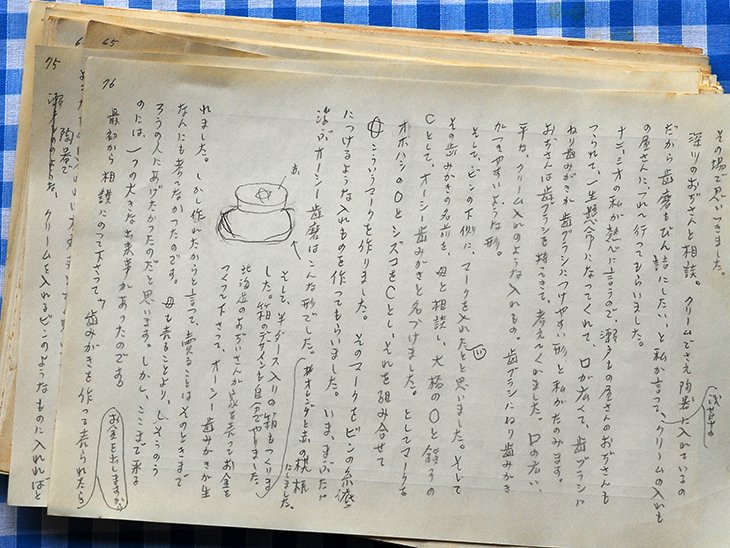 その場で思いつきました。
深川のおぢさんと相談。クリームでさえ陶器に入れているの
だから歯磨もびん詰にしたい、と私が言って、クリームの入れも
の屋さんに、つれて行ってもらいました。
十二、三才の私が熱心に言うので、瀬戸もの屋さんのおぢさんも
つられて、一生懸命になってくれて 口が広くて、歯ブラシに
ねり歯みがきが歯ブラシにつけやすい形と私がたのみます。
おぢさんは歯ブラシを持ってきて、考えてくれました。口の広い、
平な、クリーム入れのような入れもの。歯ブラシにねり歯みがき
がつきやすいような形。
そして、ビンの下側に、マークを入れたいと思いました。そして
その歯みがきの名前を、母と相談し、大橋のOと鎮子の
Cとして、オーシー歯みがきと名づけました。としてマークを
オオハシのOとシズコをCとし、それを組み合せて
こういうマークを作りました。そのマークをビンの
につけるような入れものを作ってもらいました。いま、まぶたに
浮ぶオーシー歯磨はこんな形でした。
オレンヂと赤の模様
にしました。
赤
そして、半ダース入りの箱もつくりま
した。箱のデザインも自分でやりました。
北海道のおぢいさんが家を売ってお金を
つくって下さって、オーシー歯みがきが生
れました。しかし作れたからと言って、売ることはそのときまで
なんにも考えてなかったのです。母も売ることより、しそうのう
ろうの人にあげたかったのだと思います。しかし、ここまで来る
のには、一つの大きな出来事があったのです
最初から相談にのって下さって、歯みがきを作って売られたら
お金を出しますから
76
75
65
陶器で
クリームを入れるビンのようなものに入れればと